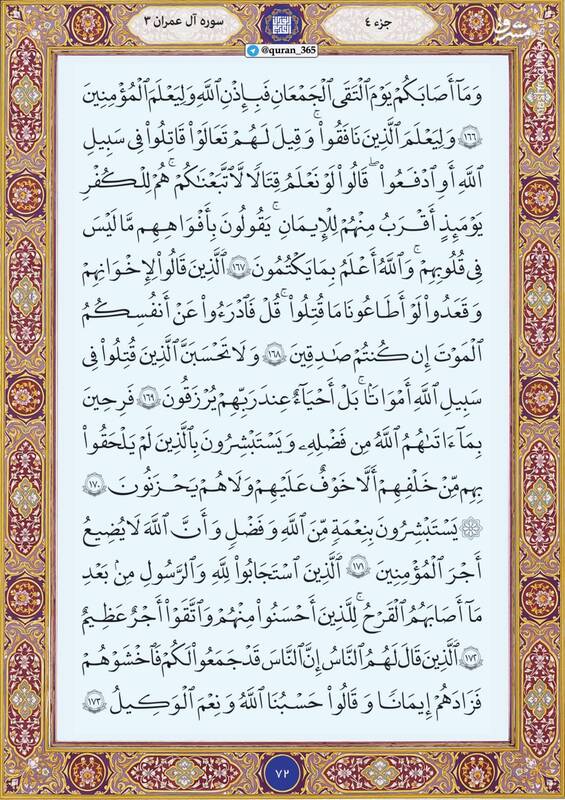 جزء ٤
سوره آل عمران ٣
@quran_365
مشرق
وَمَآ أَصَٰبَكُمۡ يَوۡمَ ٱلۡتَقَى ٱلۡجَمۡعَانِ فَبِإِذۡنِ ٱللَّهِ وَلِيَعۡلَمَ ٱلۡمُؤۡمِنِينَ
١٦٦ وَلِيَعۡلَمَ ٱلَّذِينَ نَافَقُواْۚ وَقِيلَ لَهُمۡ تَعَالَوۡاْ قَٰتِلُواْ فِي سَبِيلِ
ٱللَّهِ أَوِ ٱدۡفَعُواْۖ قَالُواْ لَوۡ نَعۡلَمُ قِتَالٗا لَّٱتَّبَعۡنَٰكُمۡۗ هُمۡ لِلۡكُفۡرِ
يَوۡمَئِذٍ أَقۡرَبُ مِنۡهُمۡ لِلۡإِيمَٰنِۚ يَقُولُونَ بِأَفۡوَٰهِهِم مَّا لَيۡسَ
فِي قُلُوبِهِمۡۚ وَٱللَّهُ أَعۡلَمُ بِمَا يَكۡتُمُونَ ١٦٧ ٱلَّذِينَ قَالُواْ لِإِخۡوَٰنِهِمۡ
وَقَعَدُواْ لَوۡ أَطَاعُونَا مَا قُتِلُواْۗ قُلۡ فَٱدۡرَءُواْ عَنۡ أَنفُسِكُمُ
ٱلۡمَوۡتَ إِن كُنتُمۡ صَٰدِقِينَ ١٦٨ وَلَا تَحۡسَبَنَّ ٱلَّذِينَ قُتِلُواْ فِي
سَبِيلِ ٱللَّهِ أَمۡوَٰتَۢاۚ بَلۡ أَحۡيَآءٌ عِندَ رَبِّهِمۡ يُرۡزَقُونَ ١٦٩ فَرِحِينَ
بِمَآ ءَاتَىٰهُمُ ٱللَّهُ مِن فَضۡلِهِۦ وَيَسۡتَبۡشِرُونَ بِٱلَّذِينَ لَمۡ يَلۡحَقُواْ
بِهِم مِّنۡ خَلۡفِهِمۡ أَلَّا خَوۡفٌ عَلَيۡهِمۡ وَلَا هُمۡ يَحۡزَنُونَ ١٧٠
۞ يَسۡتَبۡشِرُونَ بِنِعۡمَةٖ مِّنَ ٱللَّهِ وَفَضۡلٖ وَأَنَّ ٱللَّهَ لَا يُضِيعُ
أَجۡرَ ٱلۡمُؤۡمِنِينَ ١٧١ ٱلَّذِينَ ٱسۡتَجَابُواْ لِلَّهِ وَٱلرَّسُولِ مِنۢ بَعۡدِ
مَآ أَصَابَهُمُ ٱلۡقَرۡحُۚ لِلَّذِينَ أَحۡسَنُواْ مِنۡهُمۡ وَٱتَّقَوۡاْ أَجۡرٌ عَظِيمٌ
١٧٢ ٱلَّذِينَ قَالَ لَهُمُ ٱلنَّاسُ إِنَّ ٱلنَّاسَ قَدۡ جَمَعُواْ لَكُمۡ فَٱخۡشَوۡهُمۡ
فَزَادَهُمۡ إِيمَٰنٗا وَقَالُواْ حَسۡبُنَا ٱللَّهُ وَنِعۡمَ ٱلۡوَكِيلُ ١٧٣
٧٢